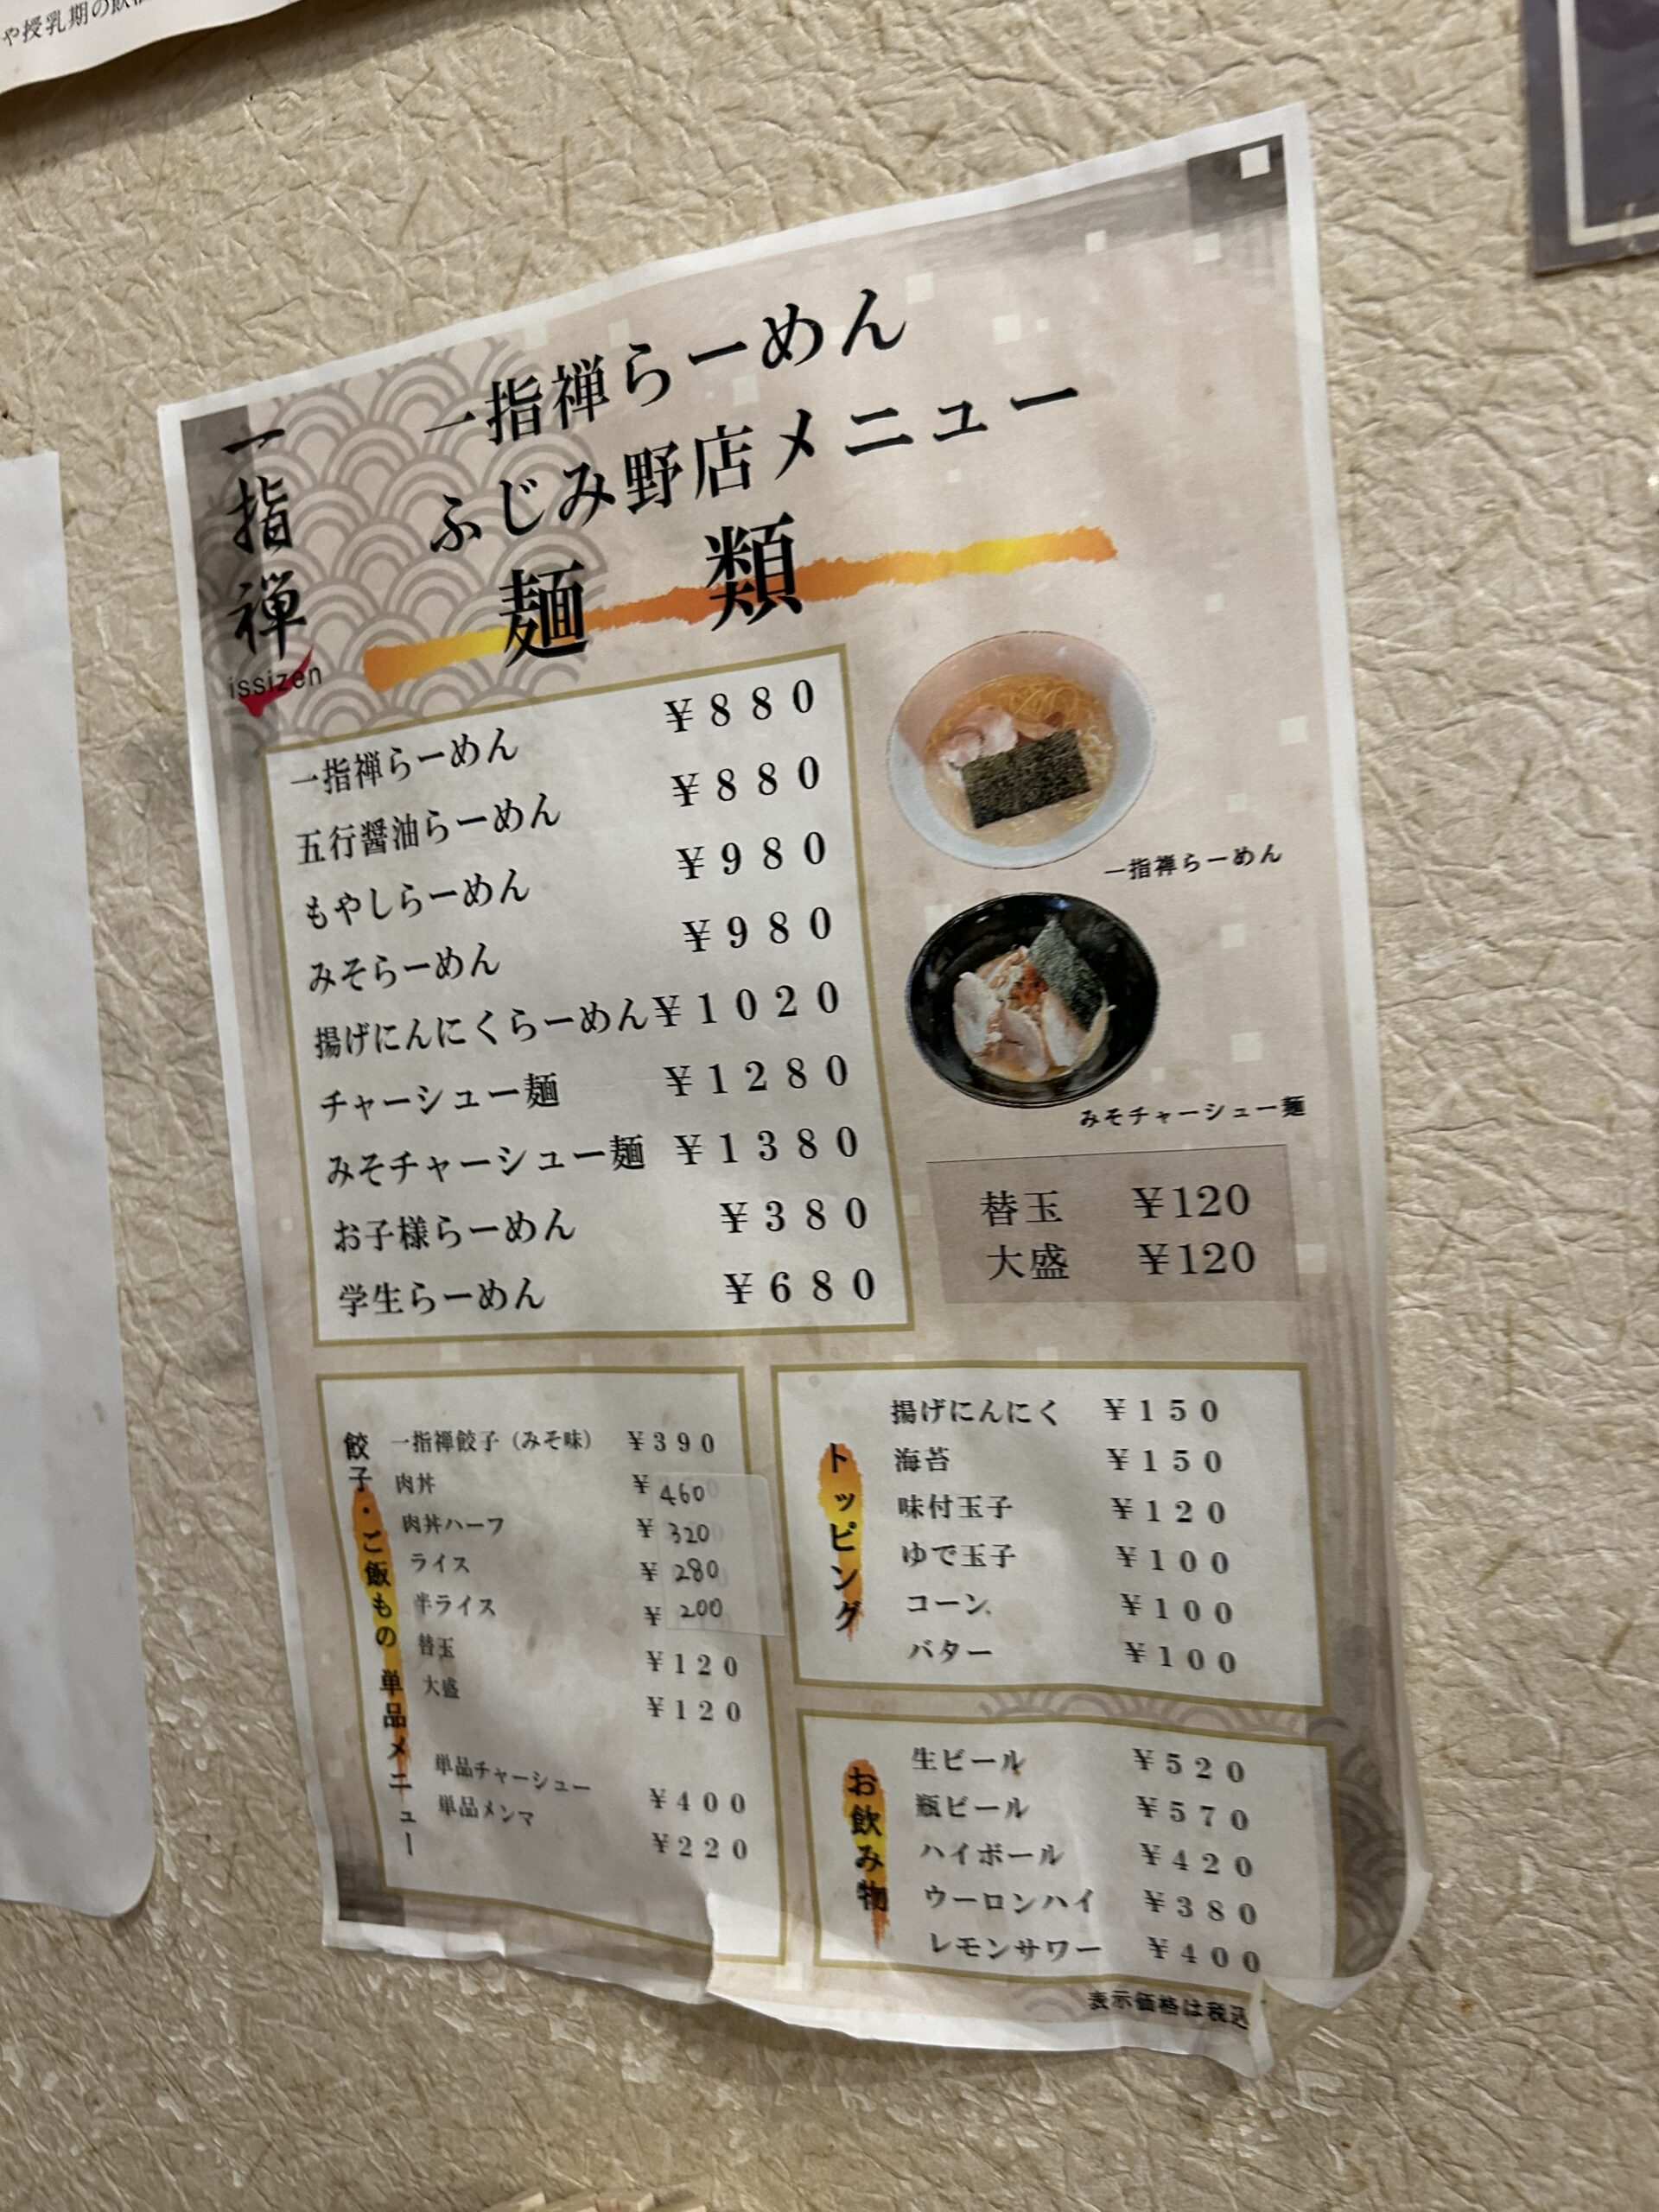 や授乳期の飲
一指禅
issizen
一指禅らーめん
ふじみ野店メニュー
麺 類
一指禅らーめん ¥880
五行醤油らーめん ¥880
もやしらーめん ¥980
みそらーめん ¥980
揚げにんにくらーめん¥1020
チャーシュー麺 ¥1280
みそチャーシュー麺 ¥1380
お子様らーめん ¥380
学生らーめん ¥680
一指禅らーめん
みそチャーシュー麺
替玉 ¥120
大盛 ¥120
餃子・ご飯もの 単品メニュー
一指禅餃子（みそ味） ¥390
肉丼 ¥460
肉丼ハーフ ¥320
ライス ¥280
半ライス ¥200
替玉 ¥120
大盛 ¥120
単品チャーシュー ¥400
単品メンマ ¥220
トッピング
揚げにんにく ¥150
海苔 ¥150
味付玉子 ¥120
ゆで玉子 ¥100
コーン ¥100
バター ¥100
お飲み物
生ビール ¥520
瓶ビール ¥570
ハイボール ¥420
ウーロンハイ ¥380
レモンサワー ¥400
表示価格は税込